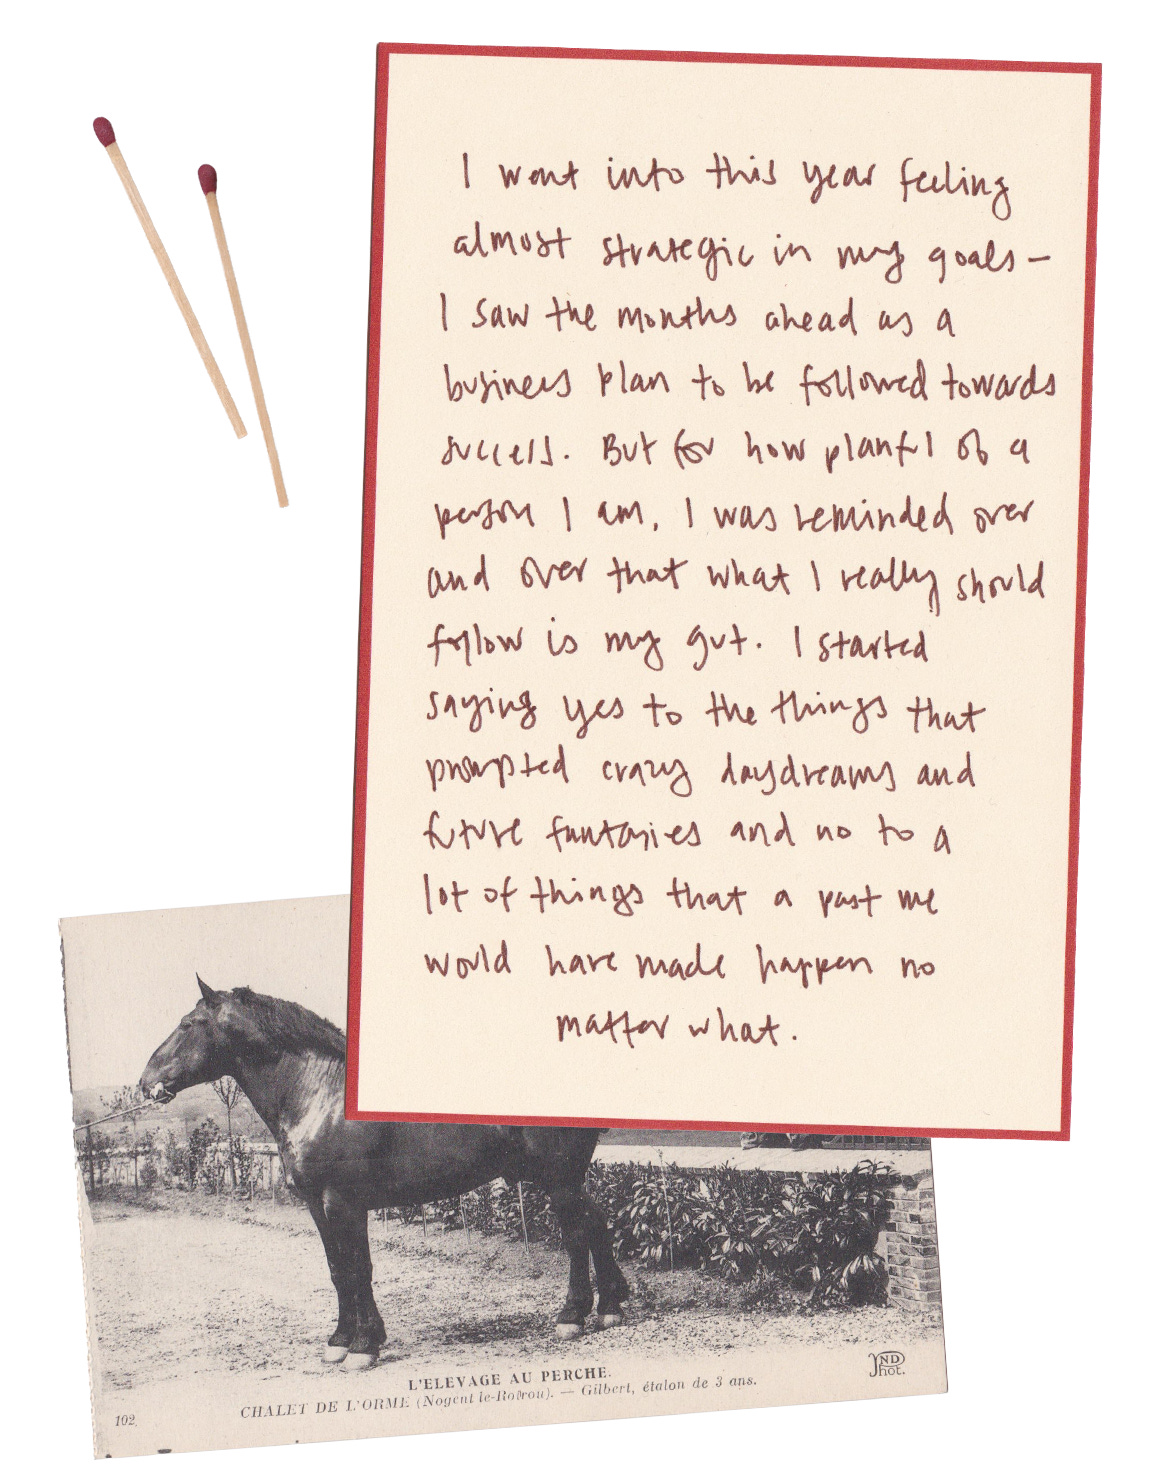 I went into this year feeling
almost strategic in my goals —
I saw the months ahead as a
business plan to be followed towards
success. But for how planful of a
person I am, I was reminded over
and over that what I really should
follow is my gut. I started
saying yes to the things that
prompted crazy daydreams and
future fantasies and no to a
lot of things that a past me
would have made happen no
matter what.
L'ELEVAGE AU PERCHE.
CHALET DE L'ORME (Nogent-le-Rotrou). — Gilbert, étalon de 3 ans.
102.
ND Phot.